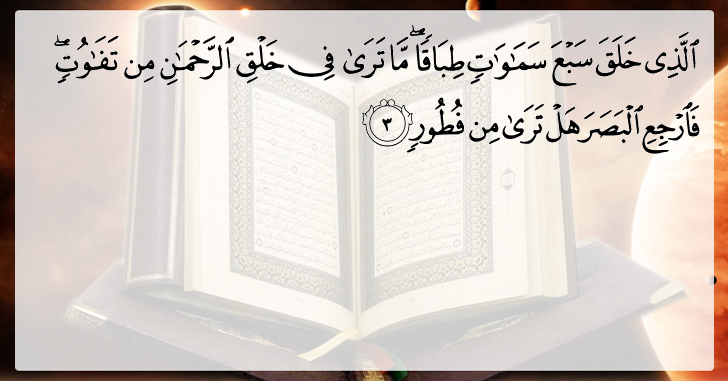 ٱلَّذِى خَلَقَ سَبْعَ سَمَٰوَٰتٍ طِبَاقًا ۖ مَّا تَرَىٰ فِى خَلْقِ ٱلرَّحْمَٰنِ مِن تَفَٰوُتٍ ۖ
فَٱرْجِعِ ٱلْبَصَرَ هَلْ تَرَىٰ مِن فُطُورٍ ٣